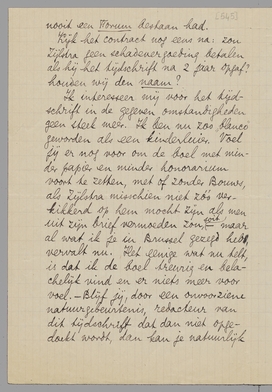 (645)
nooit een Forum bestaan had.
Kijk het contract nog eens na: zou
Zijlstra geen schadevergoeding betalen
als hij het tijdschrift na 2 jaar opgaf?
houden wij den naam?
Ik interesseer mij voor het tijd-
schrift in de gegeven omstandigheden
geen steek meer. Ik ben nu zoo blanco
geworden als een kinderluier. Voel
jij er nog voor om de boel met min-
der papier en minder honorarium
voort te zetten, met of zonder Bouws,
als Zijlstra misschien niet zóó ver-
kikkerd op hem mocht zijn als men
uit zijn brief vermoeden zou, soit, maar
al wat ik je in Brussel gezegd heb,
vervalt nu. Het eenige wat nu telt,
is dat ik de boel treurig en bela-
chelijk vind en er niets meer voor
voel. – Blijf jij, door een onvoorziene
natuurgebeurtenis, redacteur van
dit tijdschrift dat dan niet opge-
doekt wordt, dan kan je natuurlijk